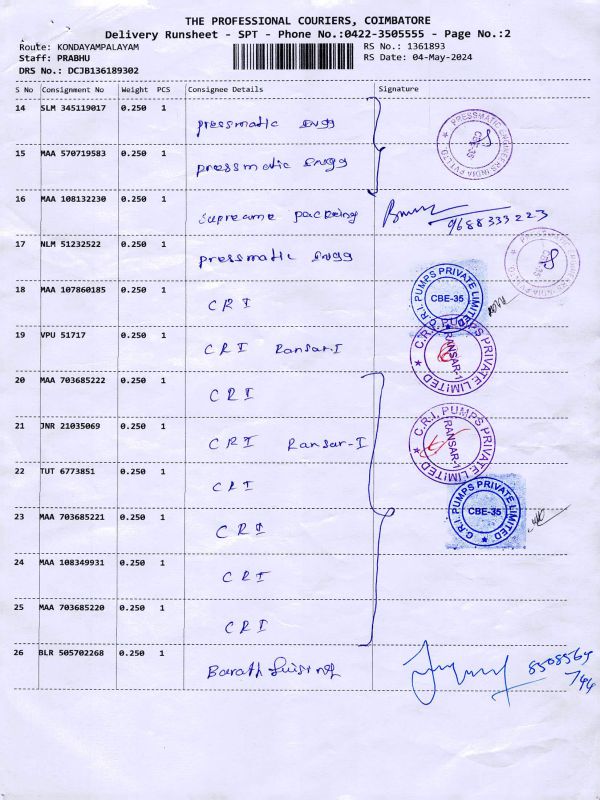 THE PROFESSIONAL COURIERS, COIMBATORE
Delivery Runsheet - SPT - Phone No.:0422-3505555 - Page No.:2
Route: KONDAYAMPALAYAM RS No.: 1361893
Staff: PRABHU RS Date: 04-May-2024
DRS No.: DCJB136189302
S No Consignment No Weight PCS Consignee Details Signature
14 SLM 345119017 0.250 1 pressmatic engg
PRESSMATIC ENGINEERS INDIA PVT LTD CBE-35
15 MAA 570719583 0.250 1 pressmatic engg
16 MAA 108132230 0.250 1 supreame packing 9688333223
17 NLM 51232522 0.250 1 pressmatic engg
PRESSMATIC ENGINEERS INDIA PVT LTD CBE-35
18 MAA 107860185 0.250 1 CRI
C.R.I. PUMPS PRIVATE LIMITED CBE-35
19 VPU 51717 0.250 1 CRI Ransar-I
C.R.I. PUMPS PRIVATE LIMITED RANSAR-1
20 MAA 703685222 0.250 1 CRI
21 JNR 21035069 0.250 1 CRI Ransar-I
C.R.I. PUMPS PRIVATE LIMITED RANSAR-1
22 TUT 6773851 0.250 1 CRI
23 MAA 703685221 0.250 1 CRI
C.R.I. PUMPS PRIVATE LIMITED CBE-35
24 MAA 108349931 0.250 1 CRI
25 MAA 703685220 0.250 1 CRI
26 BLR 505702268 0.250 1 Barath